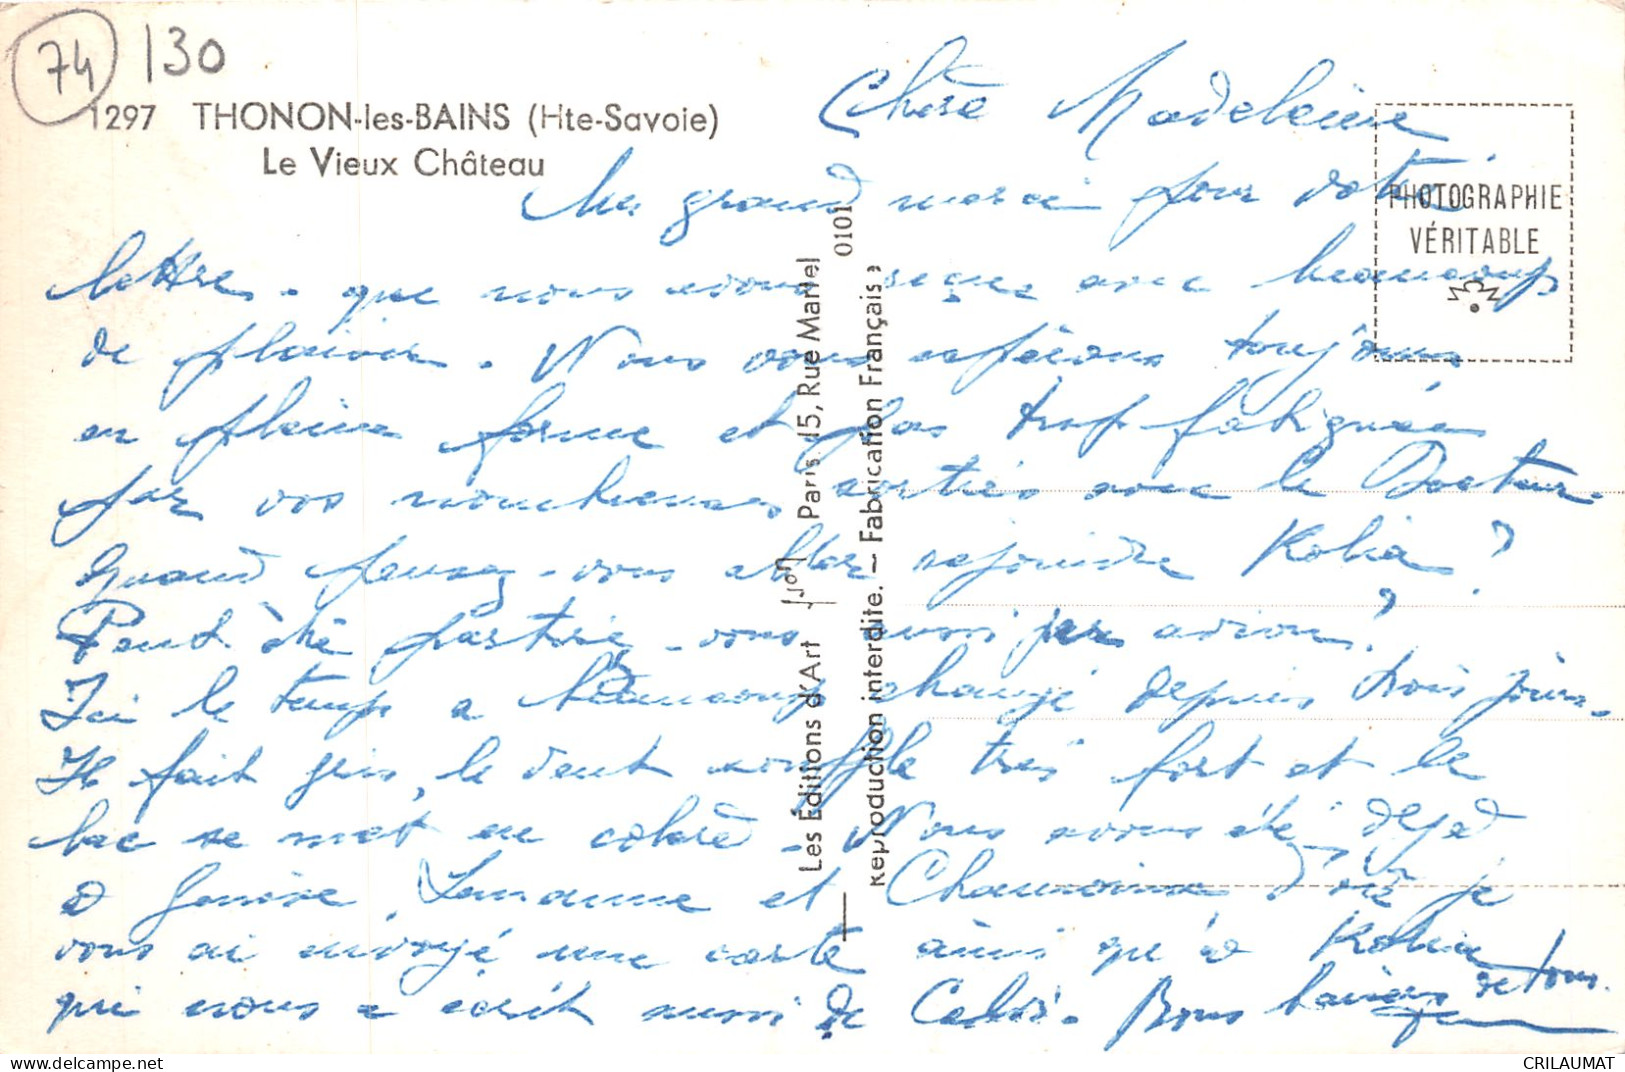 74 130
1297 THONON-les-BAINS (Hte-Savoie)
Le Vieux Château
PHOTOGRAPHIE
VÉRITABLE
Les Éditions d'Art Yvon Paris, 15, Rue Martel
0101
Reproduction interdite. — Fabrication Française
Chère Madeleine
Un grand merci pour votre
lettre - que nous avons reçue avec beaucoup
de plaisir. Nous vous espérons toujours
en pleine forme et pas trop fatiguée
par vos nombreuses sorties avec le Docteur.
Quand pensez-vous aller rejoindre Kolia ?
Peut-être partirez-vous aussi par avion ?
Ici le temps a beaucoup changé depuis trois jours.
Il fait gris, le vent souffle très fort et le
lac se met en colère. Nous avons été déjà
à Genève, Lausanne et Chamonix d'où je
vous ai envoyé une carte ainsi qu'à Kolia
qui nous a écrit aussi de Calvi. Bons baisers de tous.
CRILAUMAT
delcampe.net